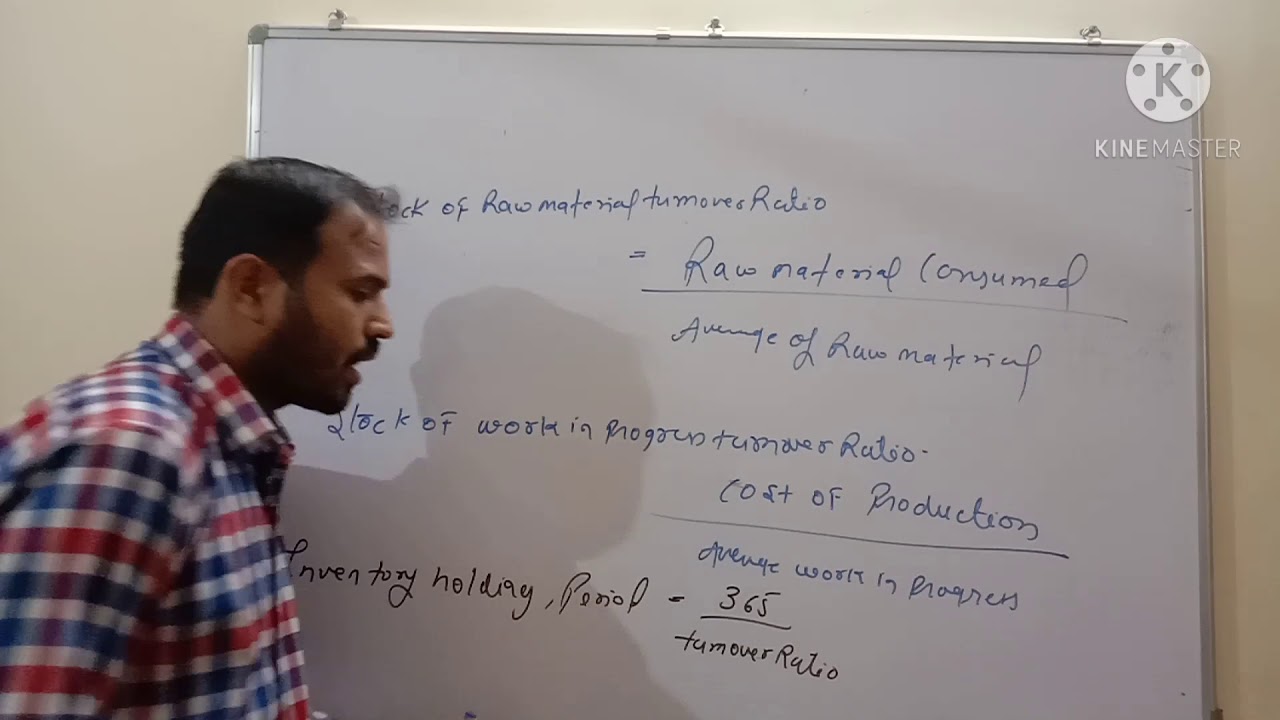 K
KINEMASTER
ock of Raw material turnover Ratio
= Raw material Consumed
Average of Raw material
Stock of work in progress turnover Ratio.
Cost of Production
Average work in progress
Inventory holding, Period = 365
turnover Ratio